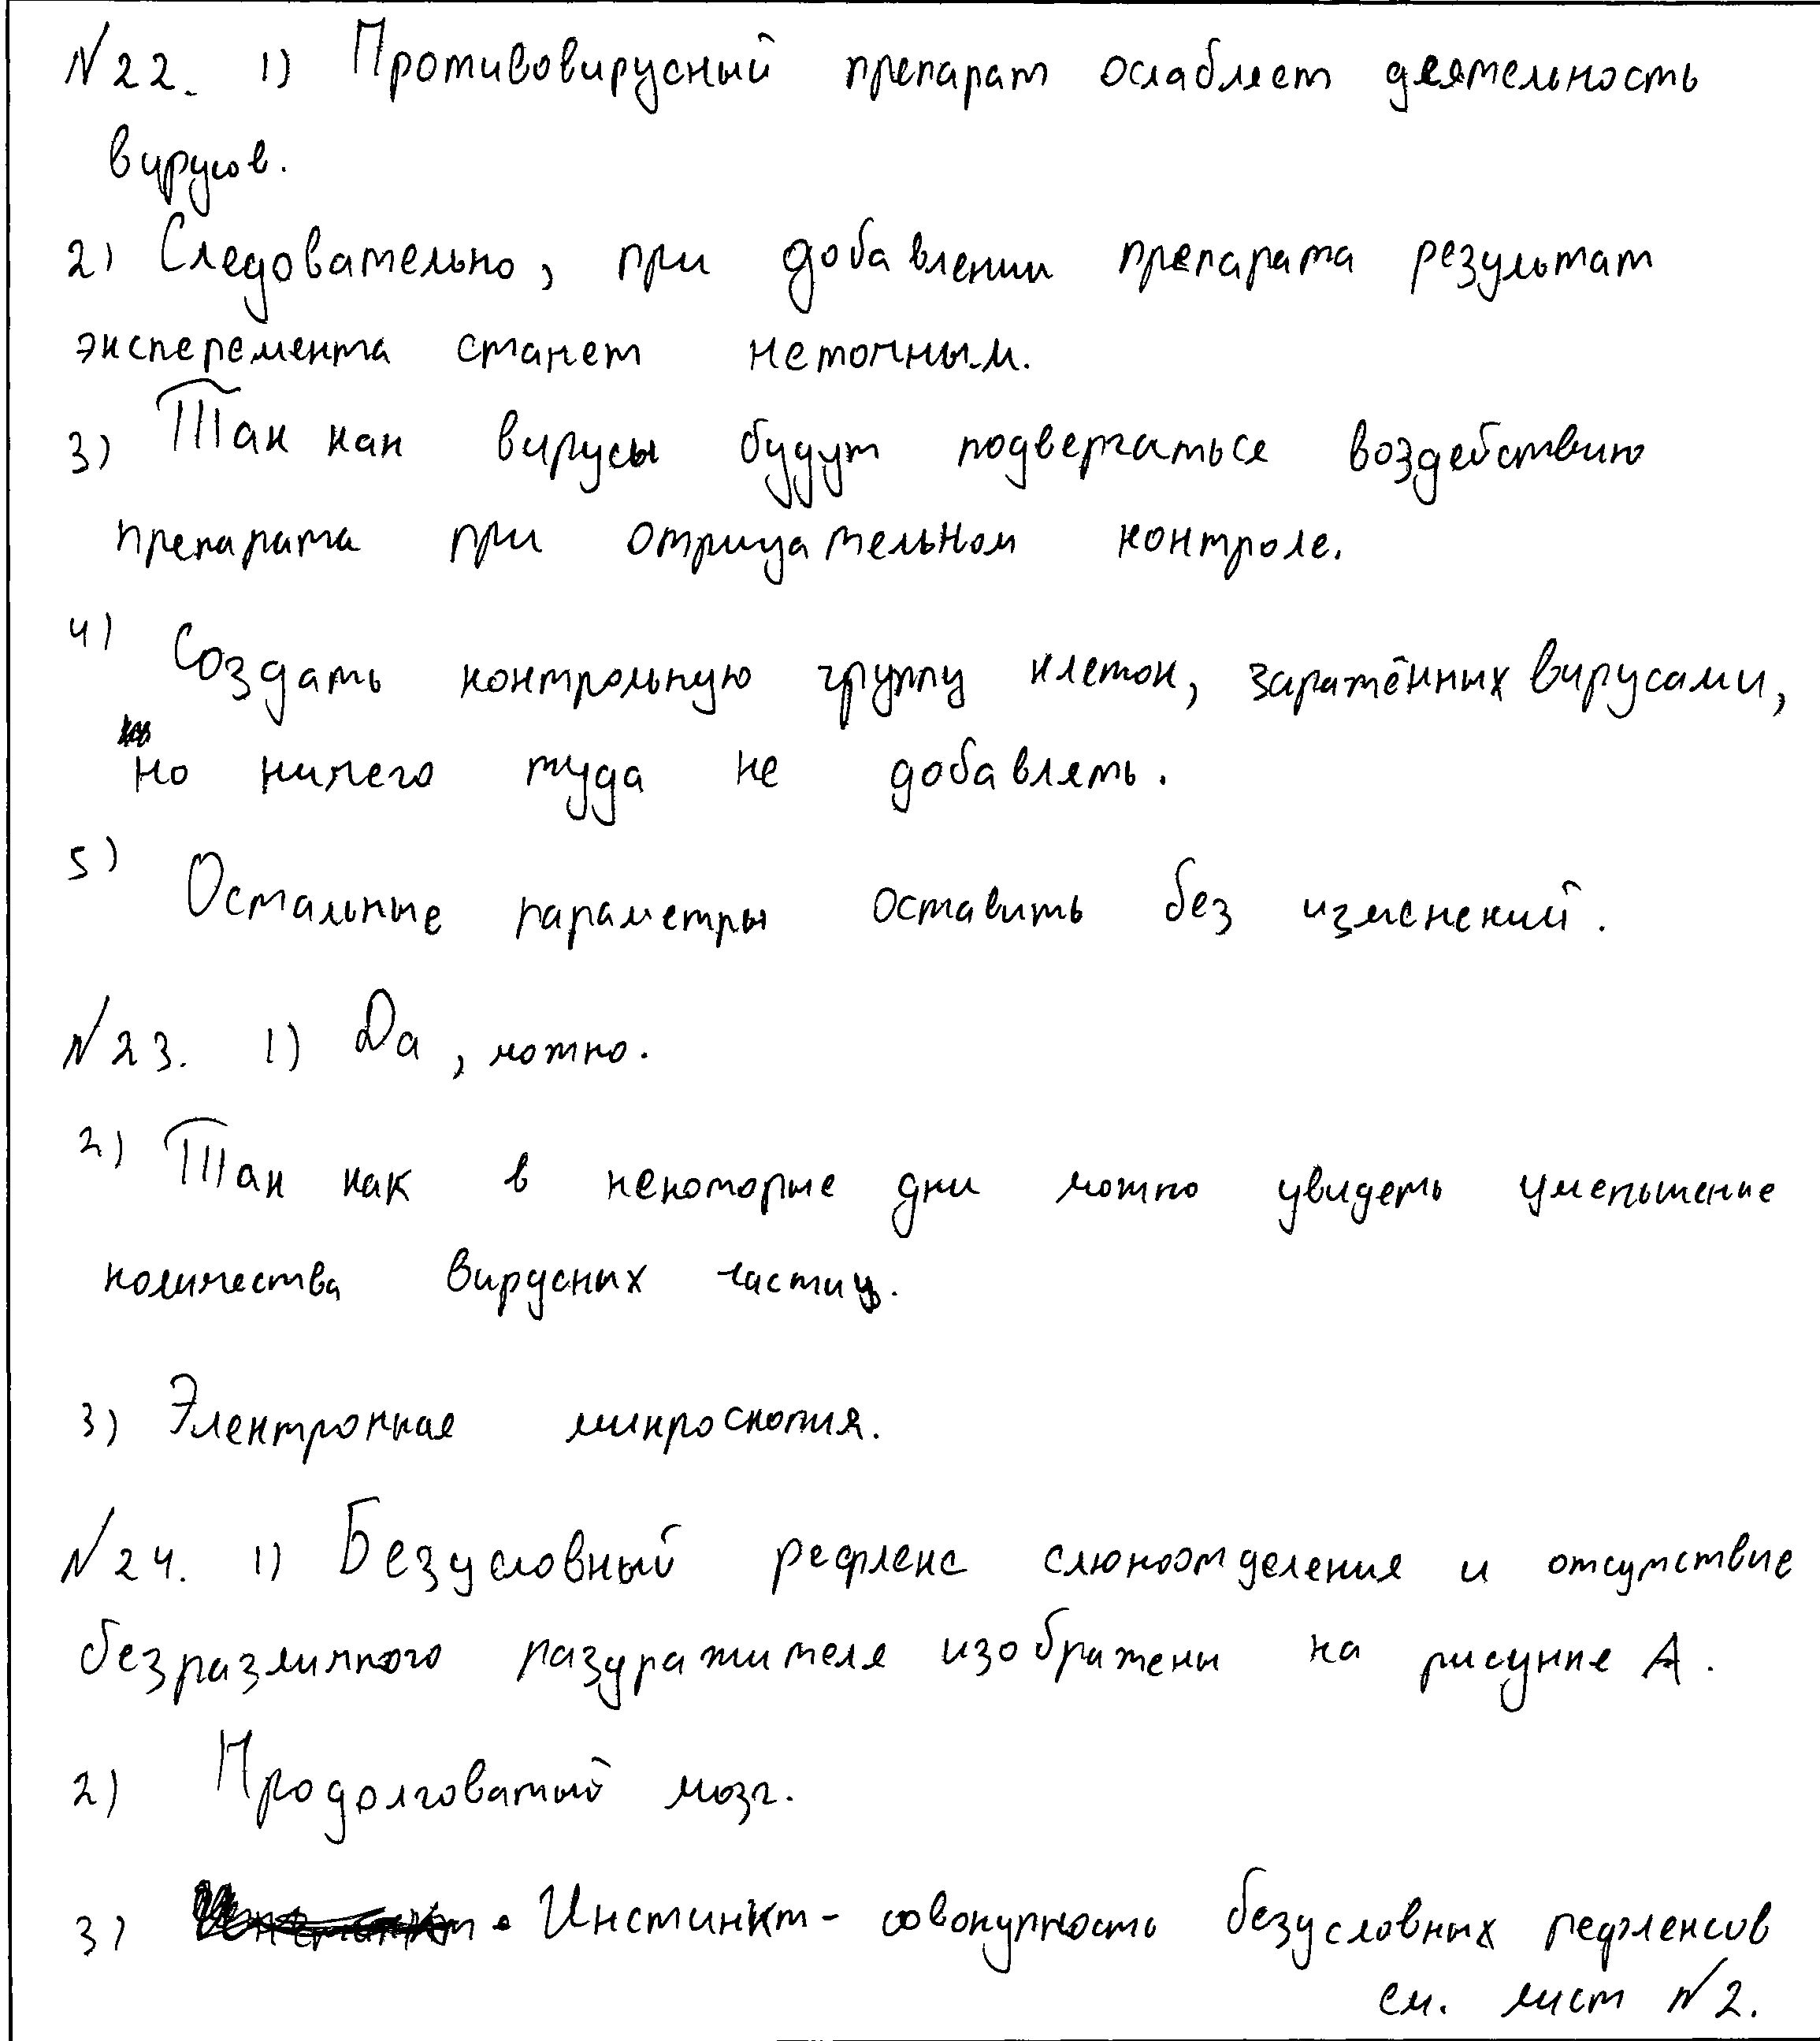 №22. 1) Противовирусный препарат ослабляет деятельность
вирусов.
2) Следовательно, при добавлении препарата результат
эксперемента станет неточным.
3) Так как вирусы будут подвергаться воздействию
препарата при отрицательном контроле.
4) Создать контрольную группу клеток, заражённых вирусами,
но ничего туда не добавлять.
5) Остальные параметры оставить без изменений.
№23. 1) Да, можно.
2) Так как в некоторые дни можно увидеть уменьшение
количества вирусных частиц.
3) Электронная микроскопия.
№24. 1) Безусловный рефлекс слюноотделения и отсутствие
безразличного раздражителя изображены на рисунке А.
2) Продолговатый мозг.
3) Инстинкт - совокупность безусловных рефлексов
см. лист №2.